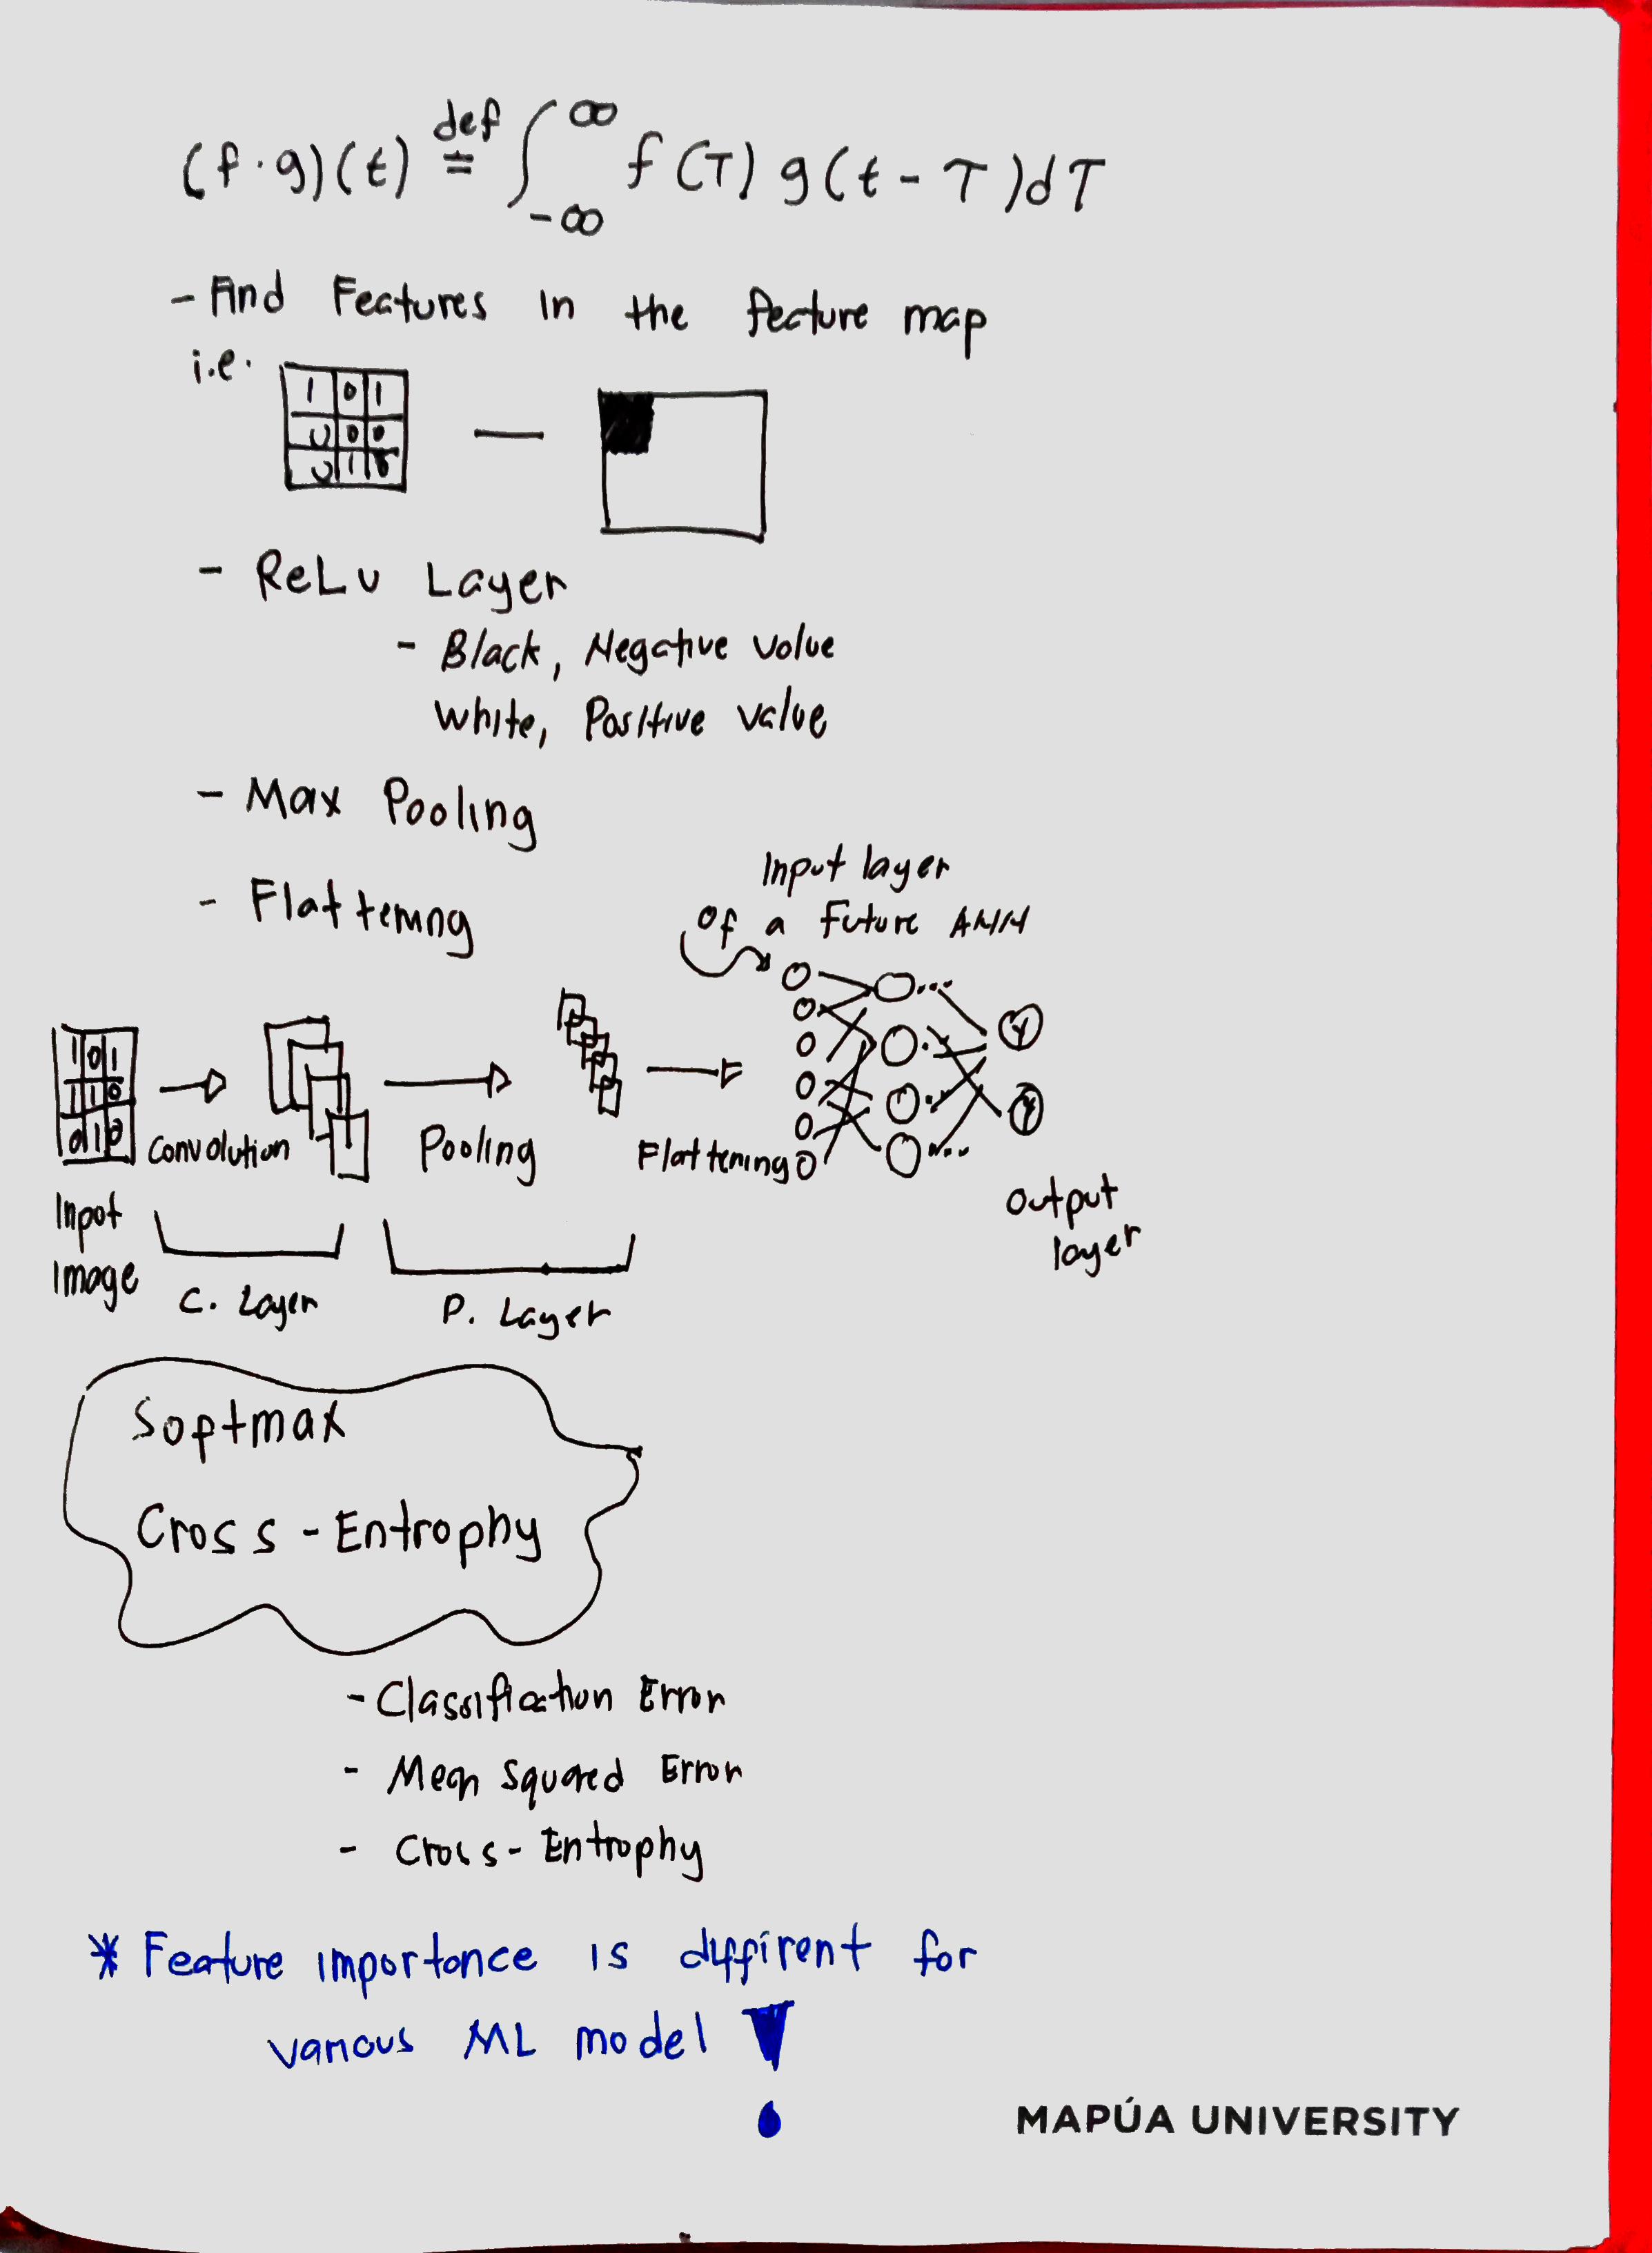 (f·g)(t) def= ∫_{-∞}^{∞} f(τ) g(t-τ)dτ
- Find Features in the feature map
i.e.
1 0 1
0 0 0
0 1
- ReLu Layer
- Black, Negative value
White, Positive value
- Max Pooling
- Flattening
Input layer
of a future ANN
1 0 1
1 1 0
0 1 0
Convolution
Pooling
Flattening
Y
Y
Input
Image
C. Layer
P. Layer
Output
layer
Softmax
Cross-Entrophy
- Classification Error
- Mean Squared Error
- Cross-Entrophy
* Feature importance is diffirent for
various ML model !
MAPÚA UNIVERSITY